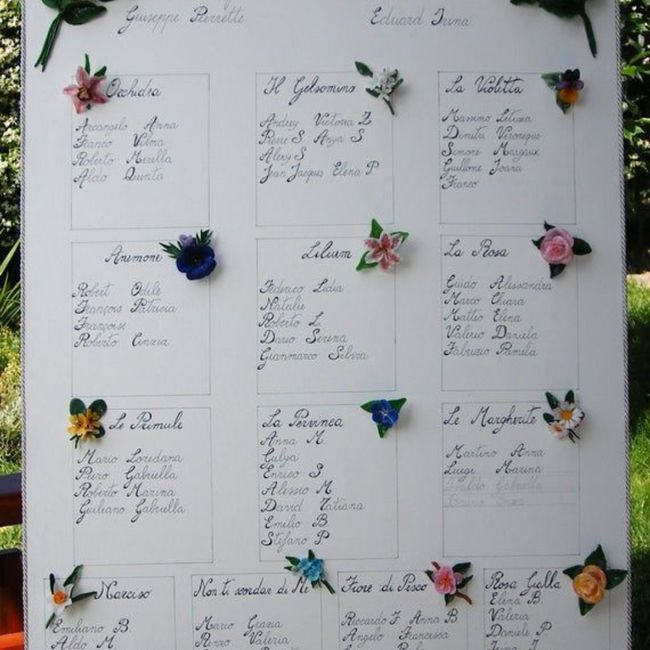 Giuseppe Pierrette
Eduard Irina
Orchidea
Arcangelo Anna
Franco Vilma
Roberto Mirella
Aldo Quinta
Il Gelsomino
Andrey Victoria Z
Pierre S Anya S
Alexy S
Jean Jacques Elena P
La Violetta
Massimo Letizia
Dimitri Veronique
Simone Margaux
Guillome Joara
Franco
Anemone
Robert Odile
François Patricia
Françoise
Roberto Cinzia
Lilium
Federico Lidia
Natalie
Roberto L
Dario Serena
Gianmarco Silvia
La Rosa
Guido Alessandra
Marco Chiara
Matteo Elena
Valerio Daniela
Fabrizio Pamela
Le Primule
Mario Loredana
Piero Gabriella
Roberto Marina
Giuliano Gabriella
La Pervinca
Anna M.
Gulya
Enrico S
Alessio M
David Tatiana
Emilio B
Stefano P
Le Margherite
Martino Anna
Luigi Marina
Gabriella
Narciso
Emiliano B.
Aldo M.
Non ti scordar di Me
Mario Grazia
Renzo Valeria
Fiore di Pesco
Riccardo F Anna B
Angelo Francessa
Rosa Gialla
Elena B
Valeria
Daniele P